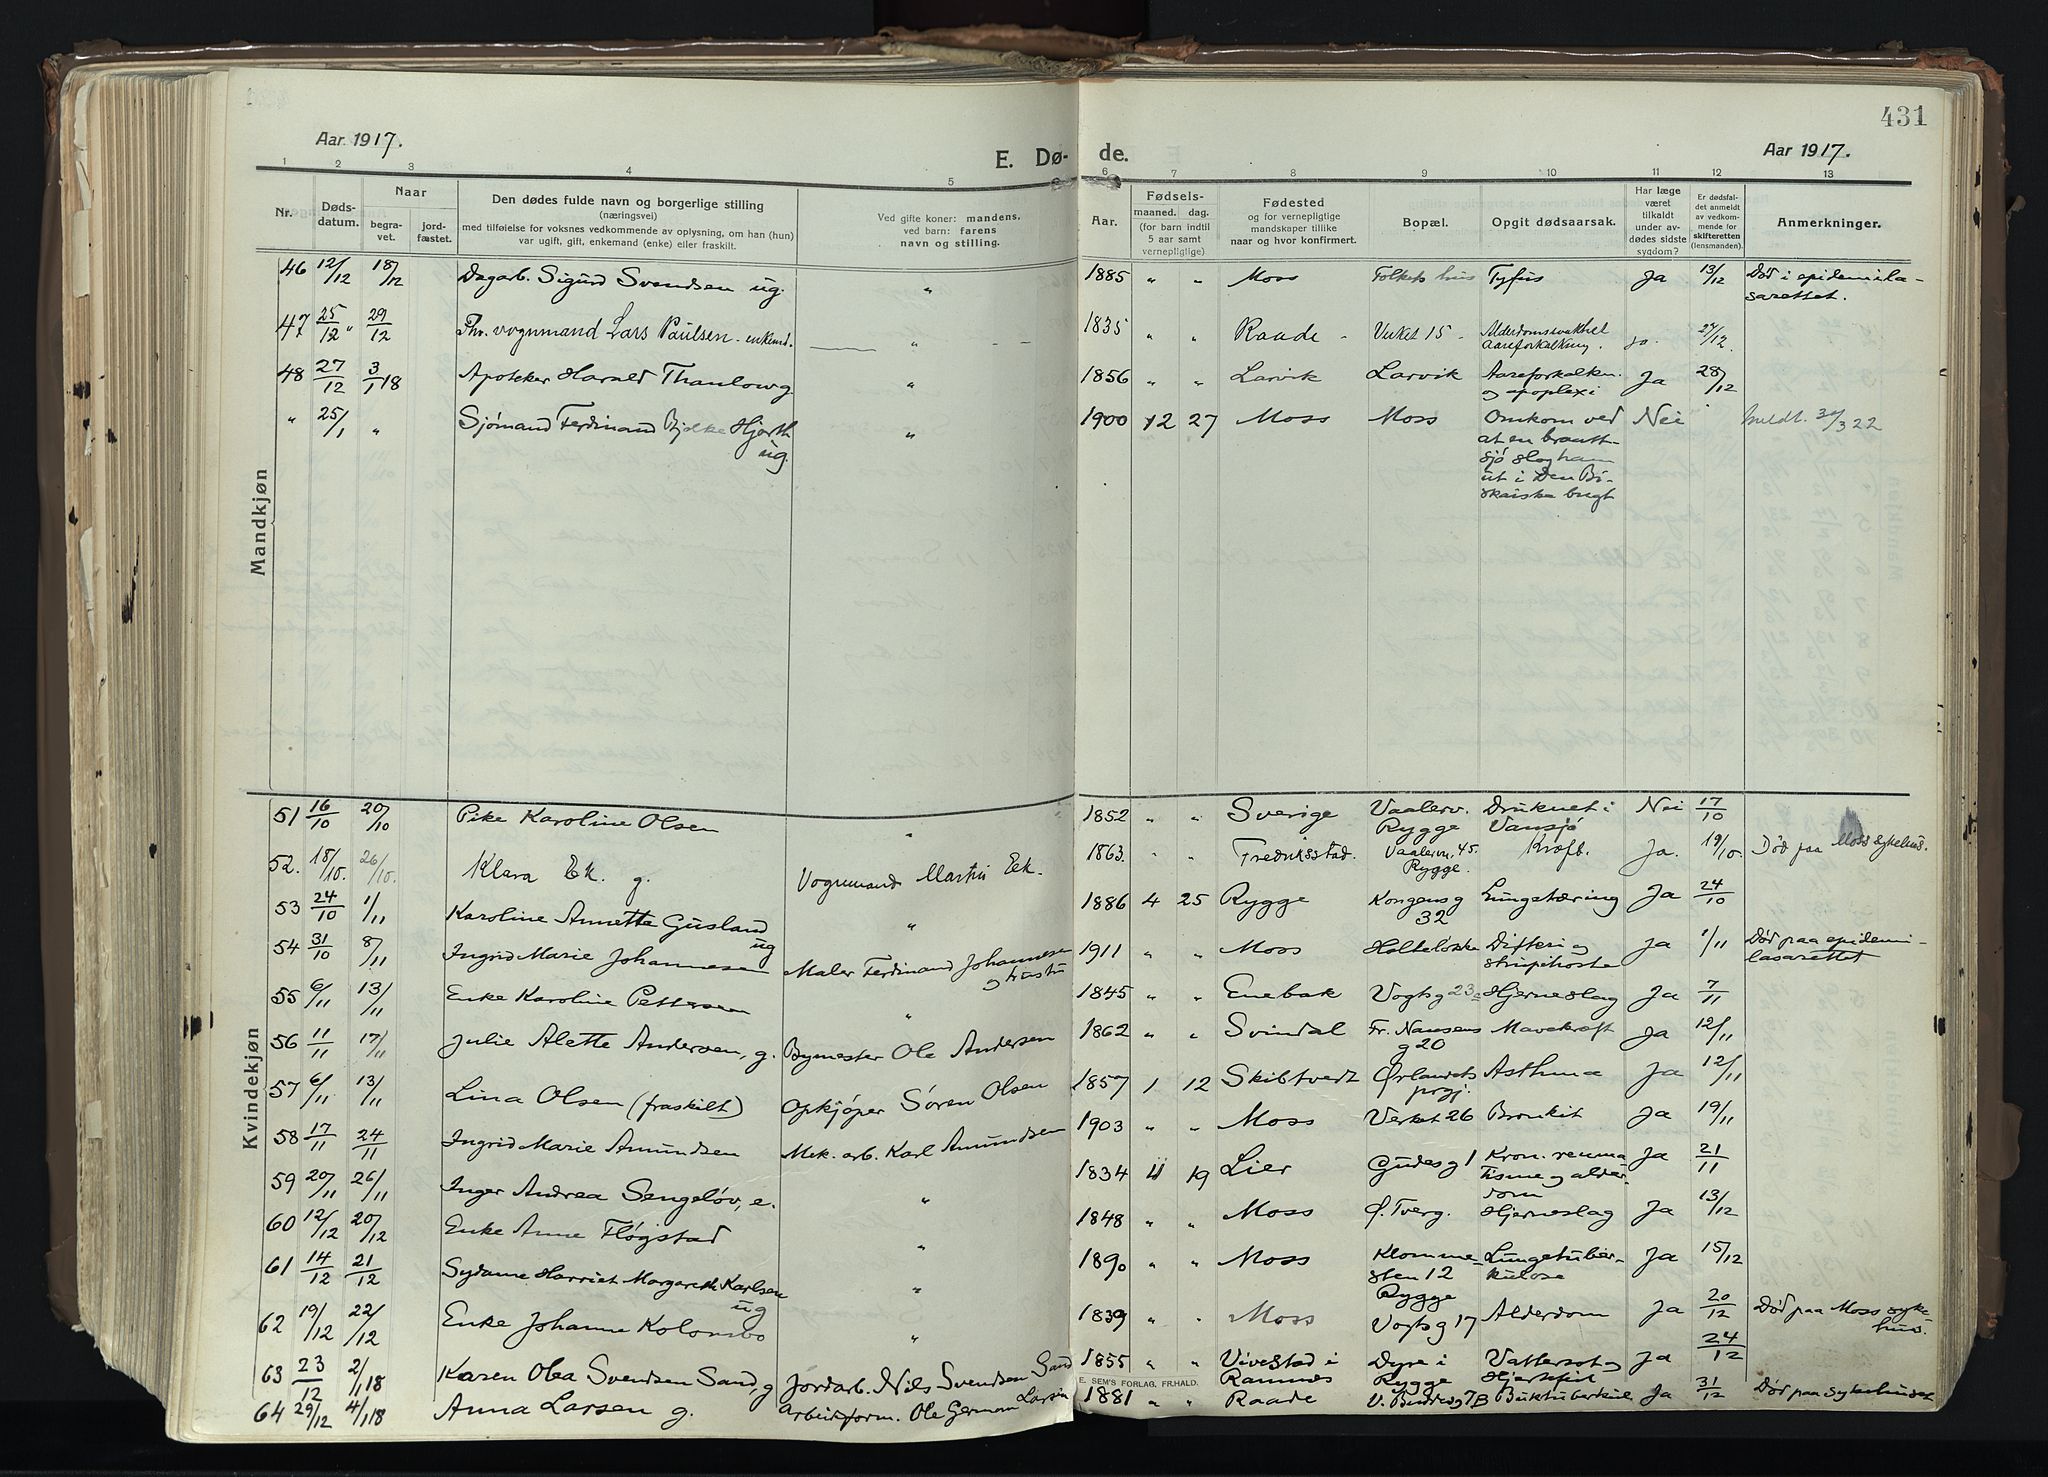 431
Aar 1917.
E. Dø- de.
Aar 1917.
1 2 3 4 5 6 7 8 9 10 11 12 13
Nr.
Døds-
datum.
Naar
begra-
vet.
jord-
fæstet.
Den dødes fulde navn og borgerlige stilling
(næringsvei)
med tilføielse for voksnes vedkommende av oplysning, om han (hun)
var ugift, gift, enkemand (enke) eller fraskilt.
Ved gifte koner: mandens,
ved barn: farens
navn og stilling.
Aar.
Fødsels-
maaned. dag.
(for barn indtil
5 aar samt
vernepligtige)
Fødested
og for vernepligtige
mandskaper tillike
naar og hvor konfirmert.
Bopæl.
Opgit dødsaarsak.
Har læge
været
tilkaldt
under av-
dødes sidste
sygdom?
Er dødsfal-
det anmeldt
av vedkom-
mende for
skifteretten
(lensmanden).
Anmerkninger.
Mandkjøn
46 12/12 18/12 Dagarb. Sigurd Svendsen ug. " 1885 " " Moss Folkets hus Tyfus Ja 13/12 Død i epidemila-
sarettet.
47 25/12 " 29/12 Fhv. vognmand Lars Paulsen - enkemd. " 1835 " " Raade - Verket 15 - Alderdomssvakhet ja. 27/12.
aareforkalkning.
48 27/12 3/1 18 Apoteker Harald Thaulow g " 1856 " " Larvik Larvik Aareforkalkn. Ja 28/12
og apoplexi
" 25/1 " Sjømand Ferdinand Bjelke Hjorth " 1900 12 27 Moss Moss Omkom ved Nei " Meldt 3 22
ug. at en braatt-
sjø slog ham
ut i Den Bi-
skaiske bugt
Kvindekjøn
51 16/10 20/10 Pike Karoline Olsen " 1852 " " Sverige Vaalerv. Druknet i Nei 17/10
Rygge Vansjø
52. 18/10. 26/10. Klara Ek. g. Vognmand Martin Eek. 1863. " " Fredriksstad. Vaalerv. 45. Kræft. Ja. 19/10. Død paa Moss sykehus.
Rygge.
53 24/10 1/11 Karoline Annette Gusland " 1886 4 25 Rygge Kongensg Lungetæring Ja 24/10
ug 32
54 31/10 8/11 Ingrid Marie Johannesen Maler Ferdinand Johannesen 1911 " " Moss Holteløkka Difteri og Ja 1/11 Død paa epidemi-
og hustru strupehoste lasarettet
55 6/11 13/11 Enke Karoline Pettersen " 1845 " " Enebak Vogtsg 23a Hjerneslag Ja 7/11
56 11/11 17/11 Julie Alette Andersen, g. Bymester Ole Andersen 1862 " " Svindal Fr. Nansens Mavekræft Ja 12/11
g 20
57 6/11 13/11 Lina Olsen (fraskilt) Opkjøper Søren Olsen 1857 1 12 Skibtvedt Ørlandets Asthma Ja 12/11
prgj.
58 17/11 24/11 Ingrid Marie Amundsen Mek. arb. Karl Amundsen 1903 " " Moss Verket 26 Bronkit Ja 19/11
59 20/11 26/11 Inger Andrea Sengeløv, e. " 1834 11 19 Lier Gudesg 1 Kron. reuma Ja 21/11
tisme og alder-
dom
60 12/12 20/12 Enke Anne Fløgstad " 1848 " " Moss Ø. Tverg. Hjerneslag Ja 13/12
61 14/12 21/12 Sydame Harriet Margareth Karlsen " 1890 " " Moss Klomme- Lungetuber- Ja 15/12
ug sten 12 kulose
Rygge
62 19/12 22/12 Enke Johanne Kolomsbo " 1839 " " Moss Vogtsg 17 Alderdom Ja 20/12 Død paa Moss syke-
hus.
63 23/12 2/1 18 Karen Olea Svendsen Sand, g Jordarb. Nils Svendsen Sand 1855 " " Vivestad i Dyre i Vattersot og Ja 24/12
Ramnes Rygge Hjertefeil
64 29/12 4/1 18 Anna Larsen g. Arbeidsform. Ole German Larsen 1881 " " Raade V. Buddesg 7B Buktuberkul Ja 31/12 Død paa sykehuset
E. SEM'S FORLAG, FR.HALD.